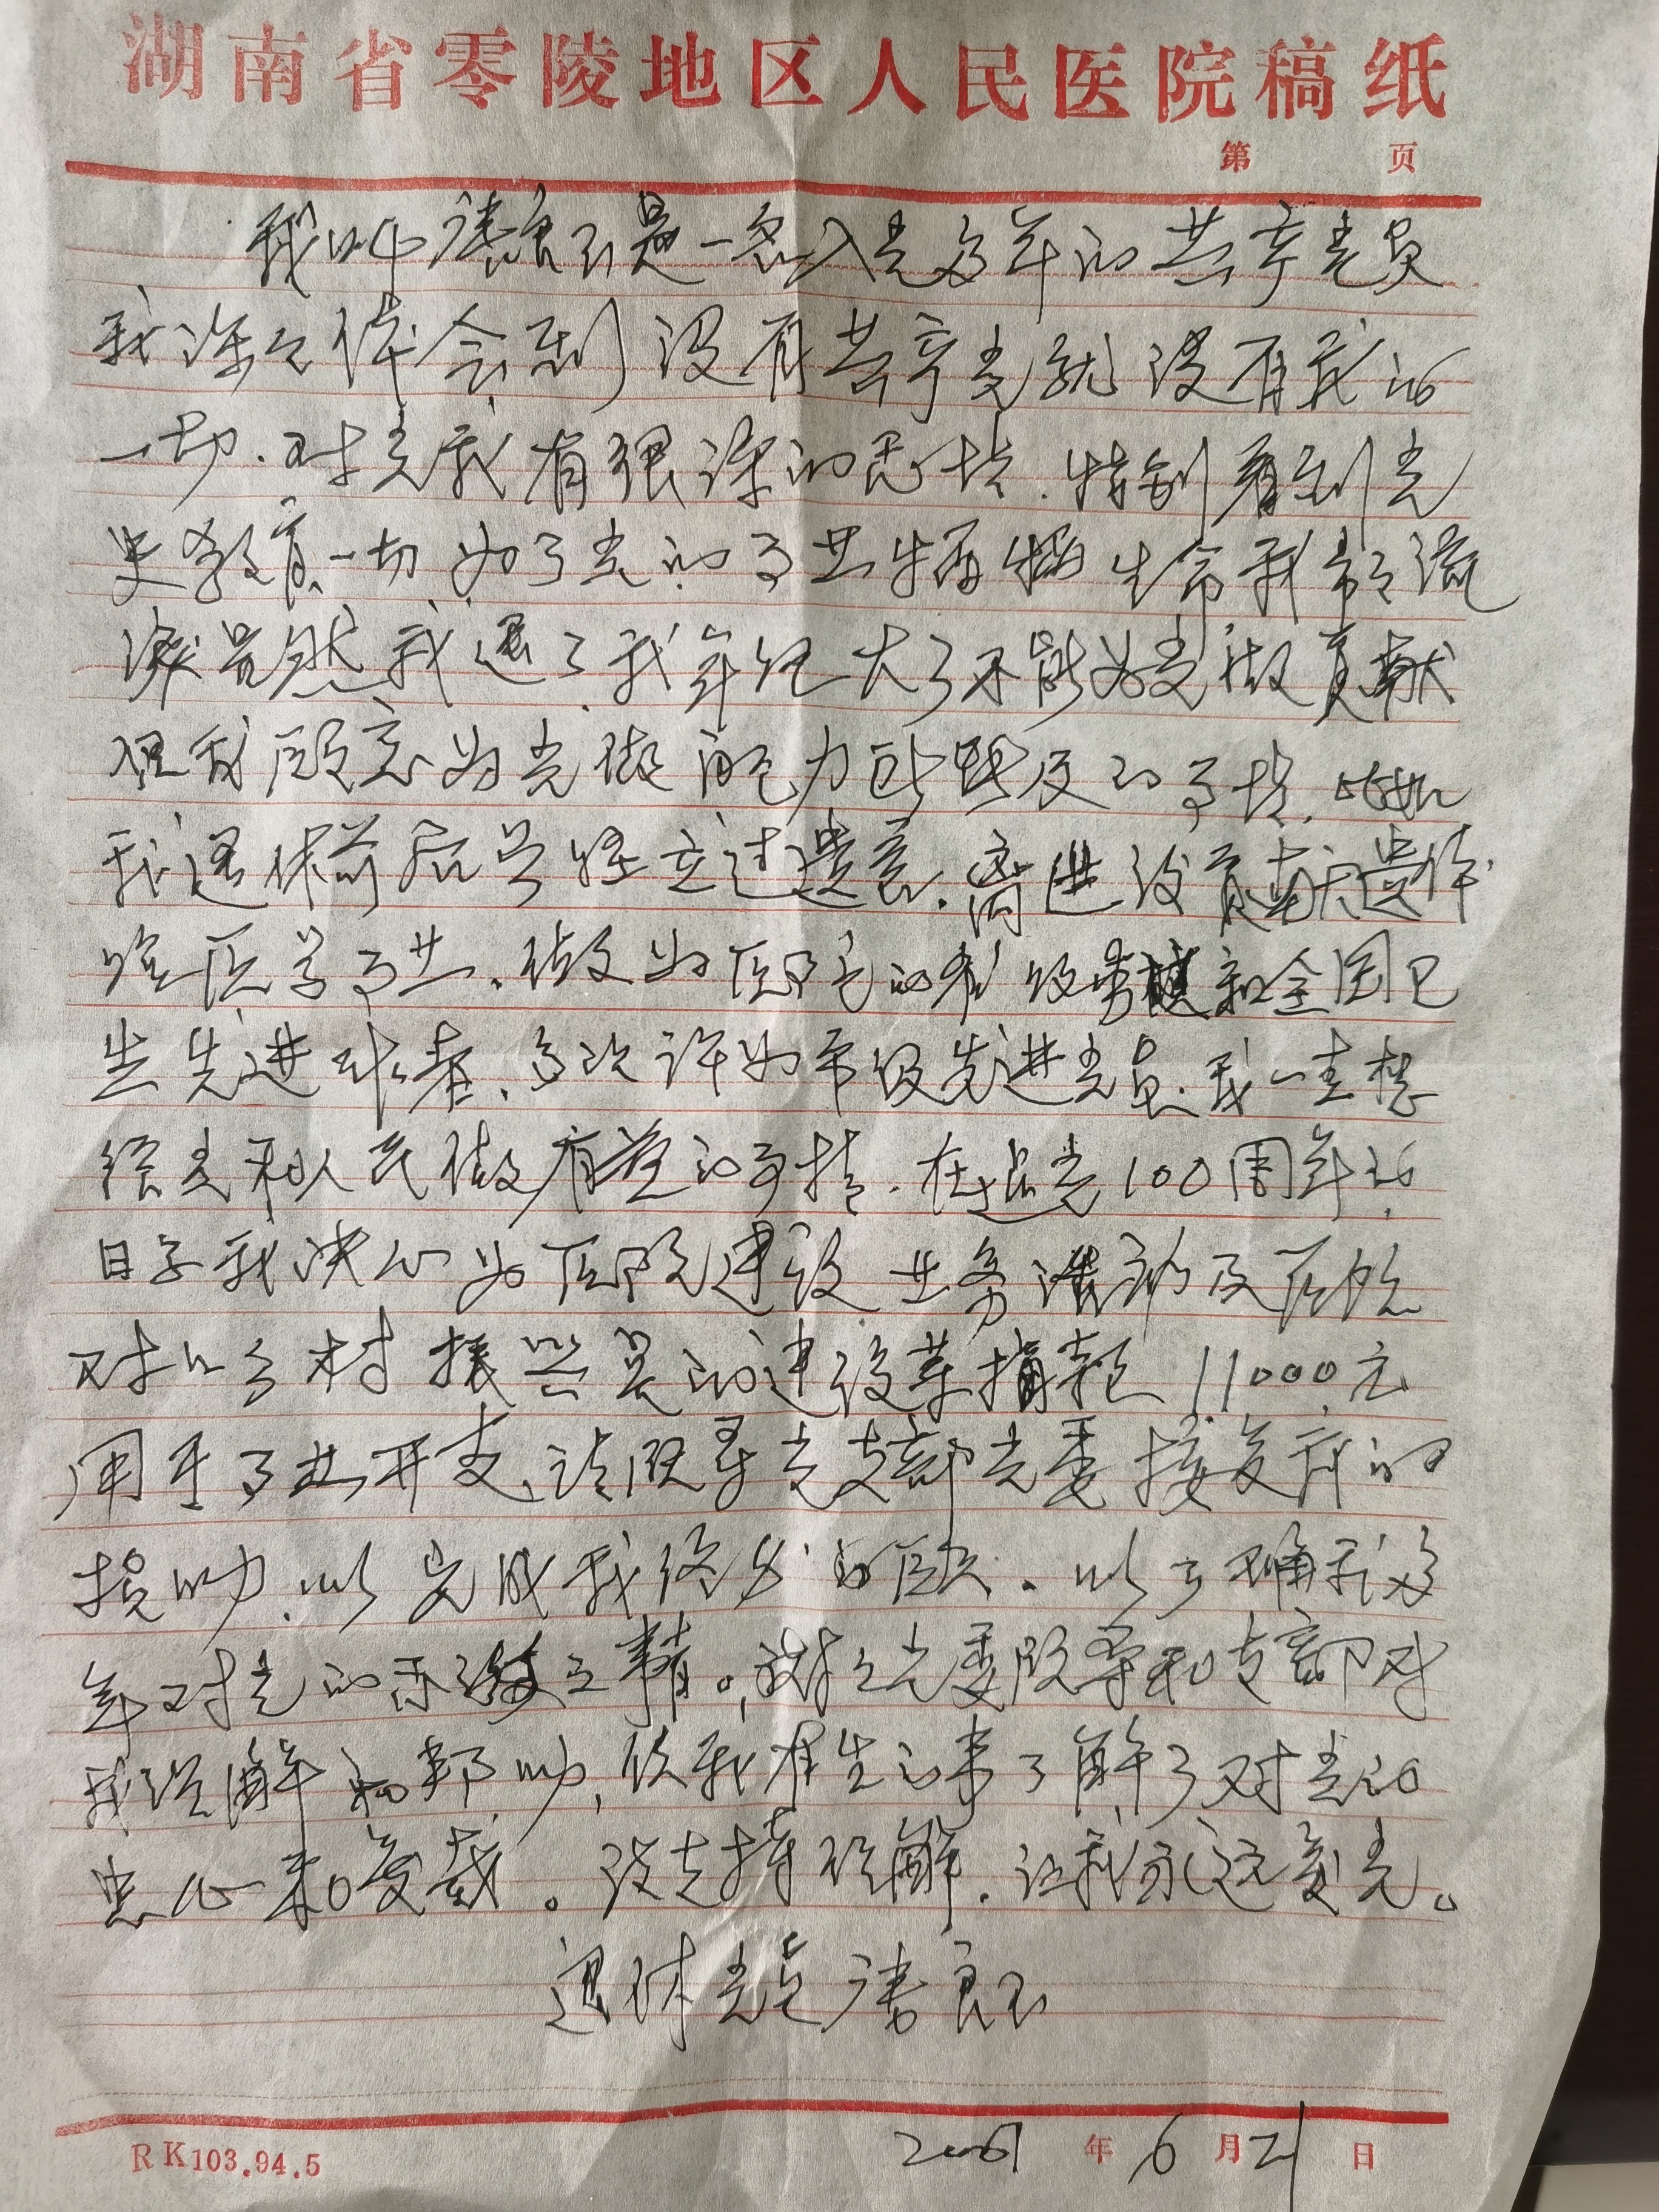 湖南省零陵地区人民医院稿纸
第 页
我叫唐良玉是一名入党多年的共产党员
我深深体会到没有共产党就没有我的
一切.对党我有很深的恩情.特别看到党
史教育一切为了党的事业牺牲生命我常常流
泪虽然我退了我年纪大了不能为党做贡献
但我愿意为党做能力所及的事情.比如
我退休前后曾经立过遗意.离世后贡献遗体
给医学事业.做为医院的和全国卫
生先进.多次评为市级先进党员.我一生想
给党和人民做有益的事情.在建党100周年的
日子我决心为医院建设业务活动及医院
对口乡村振兴的建设等捐款11000元
用于事业开支,请领导党支部党委接受我的
捐助.以完成我终生的愿.以了确我多
年对党的之情。谢谢党委领导和支部对
我理解和帮助,使我有生之来了解了对党的
忠心和爱戴。没支持理解.让我永远爱党。
退休党员唐良玉
年6月21日
RK103.94.5